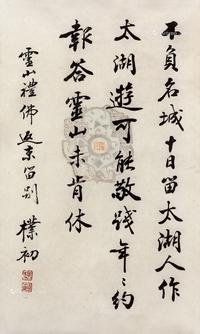 不負名城十日留太湖人作
太湖遊可能敬踐年〻約
報答靈山未肯休
靈山禮佛返京留別 樸初